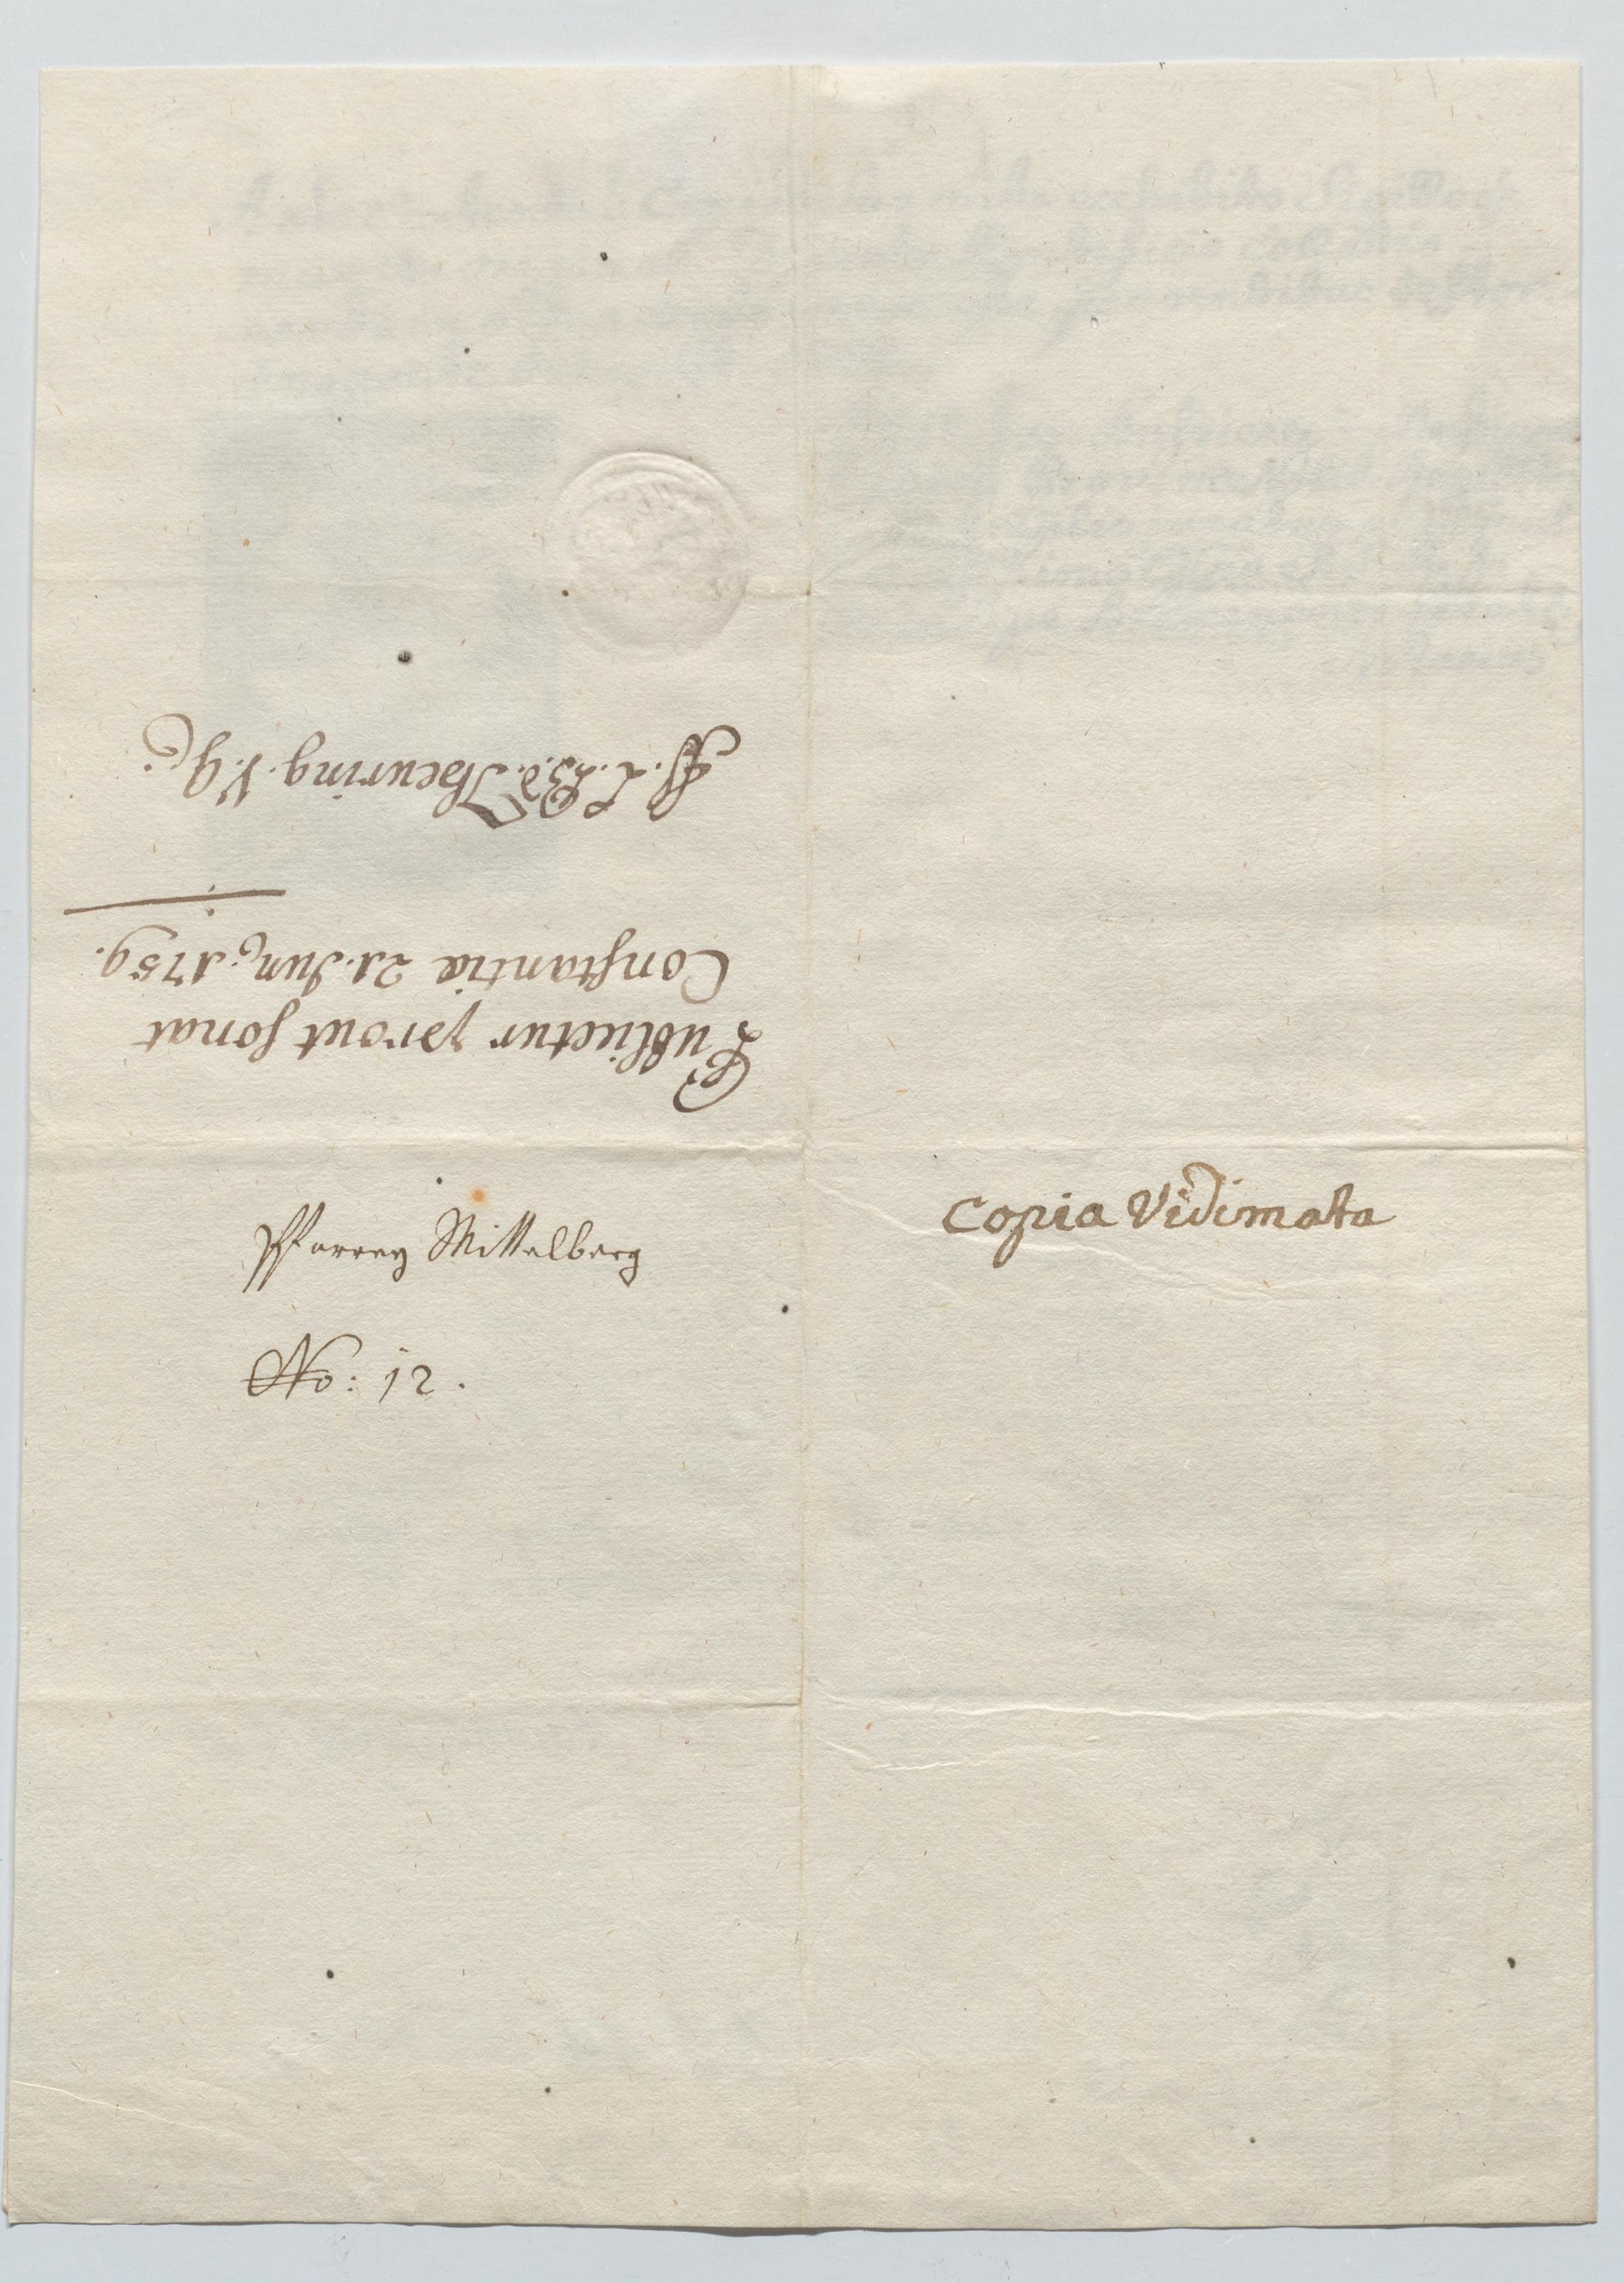 Publicetur prout sonat
Constantiæ 21. Junÿ. 1759.
F. L. B. d. Theuring. V. G.
Pfarrey Mittelberg
No: 12.
Copia Vidimata